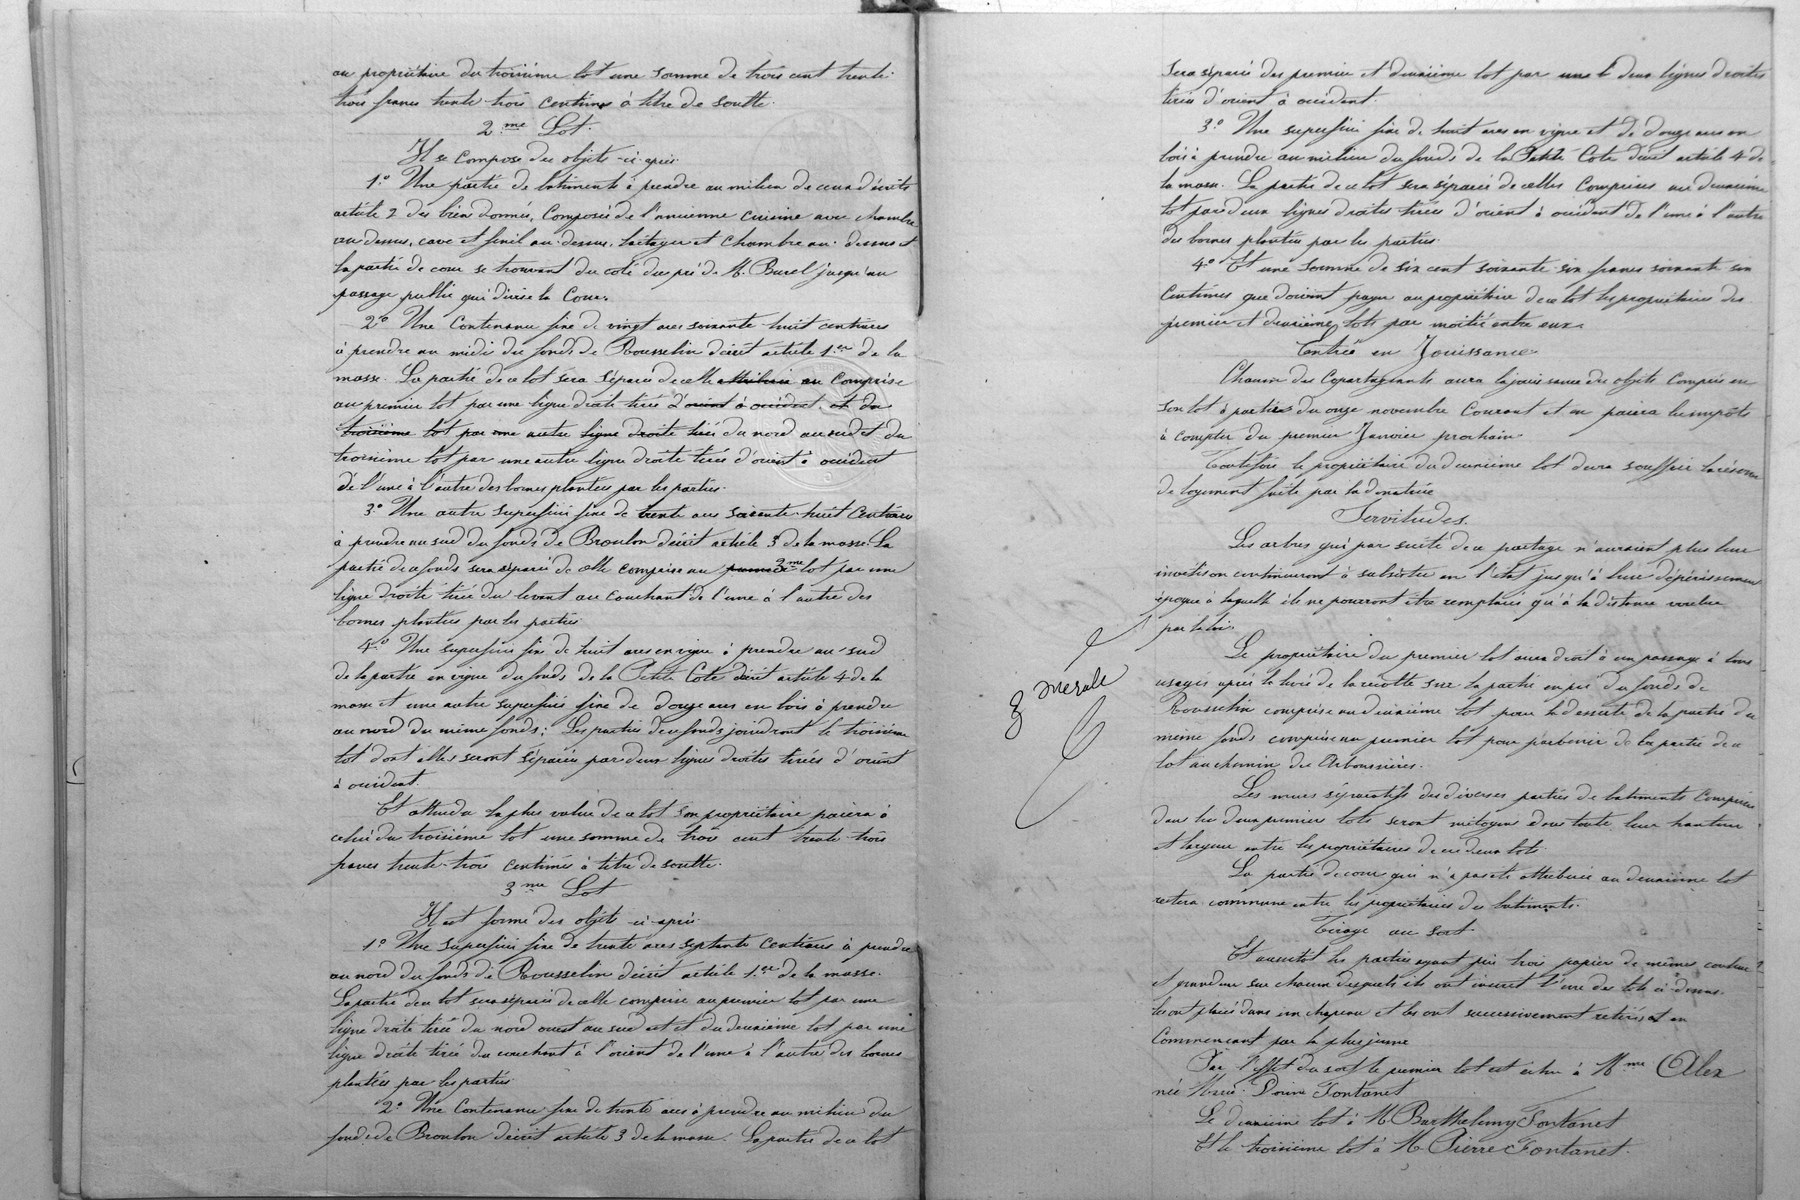 au propriétaire du troisième lot une somme de trois cent trente
trois francs trente trois centimes à titre de soulte.
2.me Lot.
Il se compose des objets ci-après
1.° Une partie de batiments à prendre au milieu de ceux décrits
article 2 des biens donnés, Composée de l'ancienne cuisine avec chambre
au dessus, cave et fenil au-dessus, laitager et chambre au-dessus et
la partie de cour se trouvant du coté du pré de M. Burel jusqu'au
passage public qui divise la Cour.
2° Une Contenance fixe de vingt ares soixante huit centiares
à prendre au midi du fonds de Rousselin décrit article 1.er de la
masse. La partie de ce lot sera séparée de celle attribuée au Comprise
au premier lot par une ligne droite tirée d'orient à occident et du
troisième lot par une autre ligne droite tirée du nord au sud et du
troisième lot par une autre ligne droite tirée d'orient à occident
de l'une à l'autre des bornes plantées par les parties.
3.° Une autre superficie fixe de trente ares soixante-huit Centiares
à prendre au sud du fonds de Broulon décrit article 3 de la masse. La
partie de ce fonds sera séparée de celle comprise au 3me lot par une
ligne droite tirée du levant au couchant de l'une à l'autre des
bornes plantées par les parties
4.° Une superficie fixe de huit ares en vigne à prendre au sud
de la partie en vigne du fonds de la Petite Cote décrit article 4 de la
masse et une autre superficie fixe de douze ares en bois à prendre
au nord du même fonds; Les parties de ce fonds joindront le troisième
lot dont elles seront séparées par deux lignes droites tirées d'orient
à occident.
Et attendu la plus value de ce lot son propriétaire paiera à
celui du troisième lot une somme de trois cent trente-trois
francs trente-trois centimes à titre de soulte.
3me Lot
Il est formé des objets ci-après
1° Une superficie fixe de trente ares septante Centiares à prendre
au nord du fonds de Rousselin décrit article 1.er de la masse.
La partie de ce lot sera séparée de celle comprise au premier lot par une
ligne droite tirée du nord ouest au sud est et du deuxième lot par une
ligne droite tirée du couchant à l'orient de l'une à l'autre des bornes
plantées par les parties
2° Une Contenance fixe de trente ares à prendre au milieu du
fonds de Broulon décrit article 3 de la masse. La partie de ce lot
sera séparée des premier et deuxième lot par une b deux lignes droites
tirées d'orient à occident.
3.° Une superficie fixe de huit ares en vigne et de douze ares en
bois à prendre au milieu du fonds de la Petite Cote décrit article 4 de
la masse. La partie de ce lot sera séparée de celles Comprises au deuxième
lot par deux lignes droites tirées d'orient à occident de l'une à l'autre
des bornes plantées par les parties.
4.° Et une somme de six cent soixante six francs soixante six
Centimes que doivent payer au propriétaire de ce lot les propriétaires des
premier et deuxième lots par moitié entre eux.
Entrée en Jouissance
Chacun des Copartageants aura la jouissance des objets Compris en
son lot à partir du onze novembre Courant et en paiera les impots
à compter du premier Janvier prochain
Toutefois le propriétaire du deuxième lot devra souffrir la réserve
de logement faite par la donatrice
Servitudes.
Les arbres qui par suite de ce partage n'auraient plus leur
invetison continueront à subsister en l'état jusqu'à leur dépérissement
époque à laquelle ils ne pourront être remplacés qu'à la distance voulue
par la loi.
Le propriétaire du premier lot aura droit à un passage à tous
usages après la levée de la récolte sur la partie en pré du fonds de
Rousselin comprise au deuxième lot pour la desserte de la partie du
même fonds comprise au premier lot pour parvenir de la partie de ce
lot au chemin des Arboussières.
Les murs séparatifs des diverses parties de batiments Comprises
dans les deux premier lots seront mitoyens dans toute leur hauteur
et largeur entre les propriétaires de ces deux lots.
La partie de cour qui n'a pas été attribuée au deuxième lot
restera commune entre les propriétaires des batiments.
Tirage au sort
Et aussitot les parties ayant pris trois papiers de mêmes couleur
et grandeur sur chacun desquels ils ont inscrit l'une des lots ci-dessus.
les ont placés dans un chapeau et les ont successivement retirés et en
Commençant par la plus jeune
Par l'effet du sort le premier lot est échu à Mme Alex
née Marie Fontanet
Le deuxième lot à M Barthelemy Fontanet
Et le troisième lot à M Pierre Fontanet.